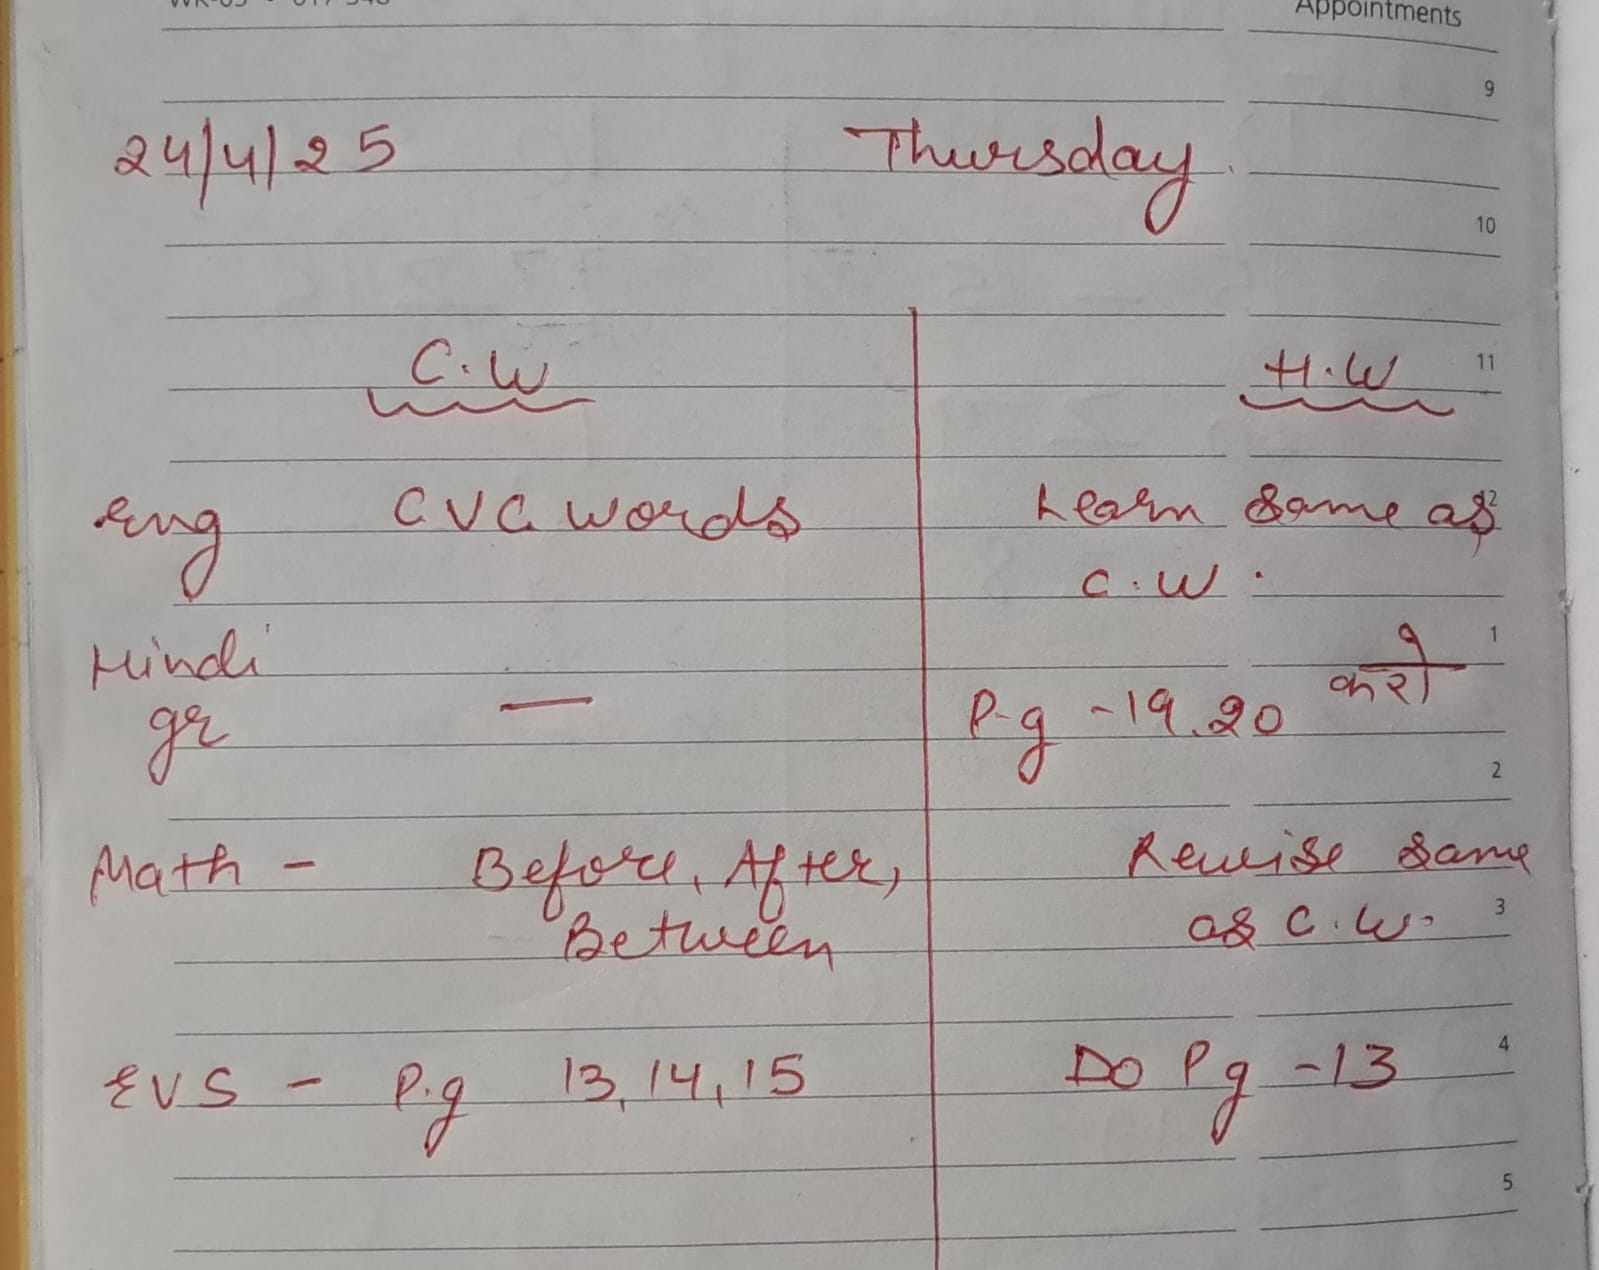 Appointments
9
24/4/25 Thursday
10
C.W H.W 11
Eng CVC words Learn same as 12
C.W.
Hindi 1
gr — P-g -19.20 करो
2
Math - Before, After, Revise same
Between as C.W. 3
EVS - P.g 13, 14, 15 Do Pg -13 4
5